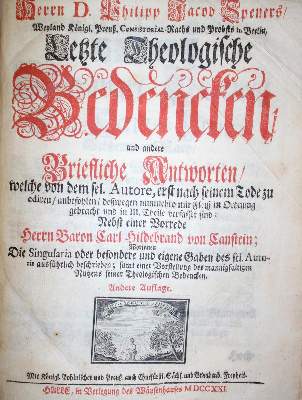 Herrn D. Philipp Jacob Speners/
Weyland Königl. Preuß. Consistorial-Raths und Probsts in Berlin,
Letzte Theologische
Bedencken/
und andere
Briefliche Antworten/
welche von dem sel. Autore, erst nach seinem Tode zu
ediren/ anbefohlen/ deswegen nunmehro mit Fleiß in Ordnung
gebracht und in III. Theile verfasset sind/
Nebst einer Vorrede
Herrn Baron Carl Hildebrand von Canstein;
Worinnen
Die Singularia oder besondere und eigene Gaben des sel. Auto-
ris ausführlich beschrieben; samt einer Vorstellung des mannigfaltigen
Nutzens seiner Theologischen Bedencken.
Andere Auflage.
Mit Königl. Pohlnischen und Preuß. auch Churfürstl. Sächß. und Brandenb. Freyheit.
HALLE, in Verlegung des Wäysenhauses MDCCXXI.